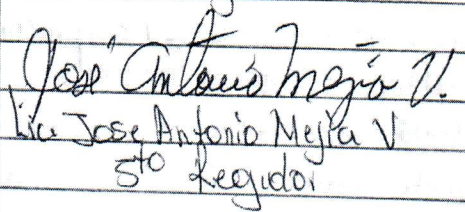 José Antonio Mejía V.
Lic Jose Antonio Mejía V
5to Regidor